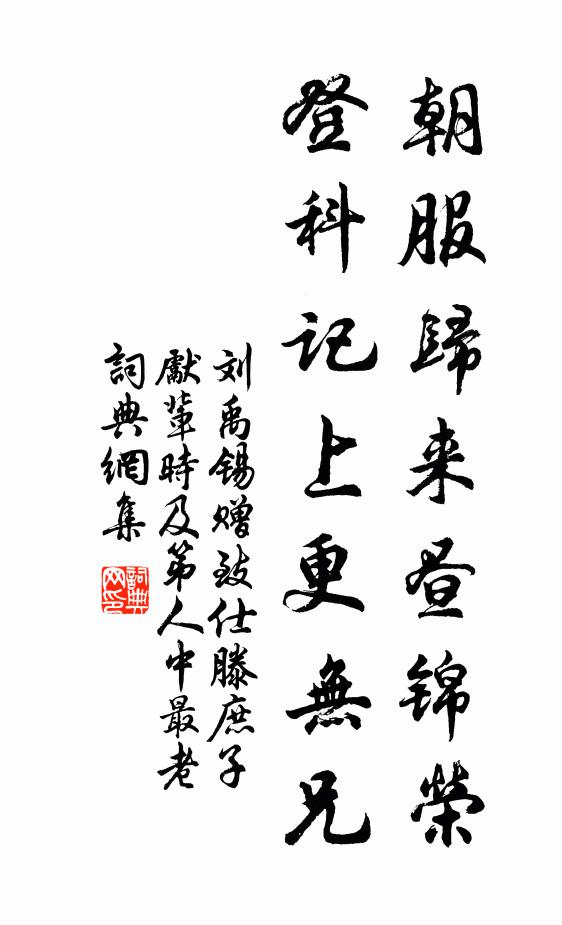 朝服歸来昼锦榮
登科记上更無兄
刘禹锡赠致仕滕庶子
獻輩時及第人中最老
詞典網集
詞典网印